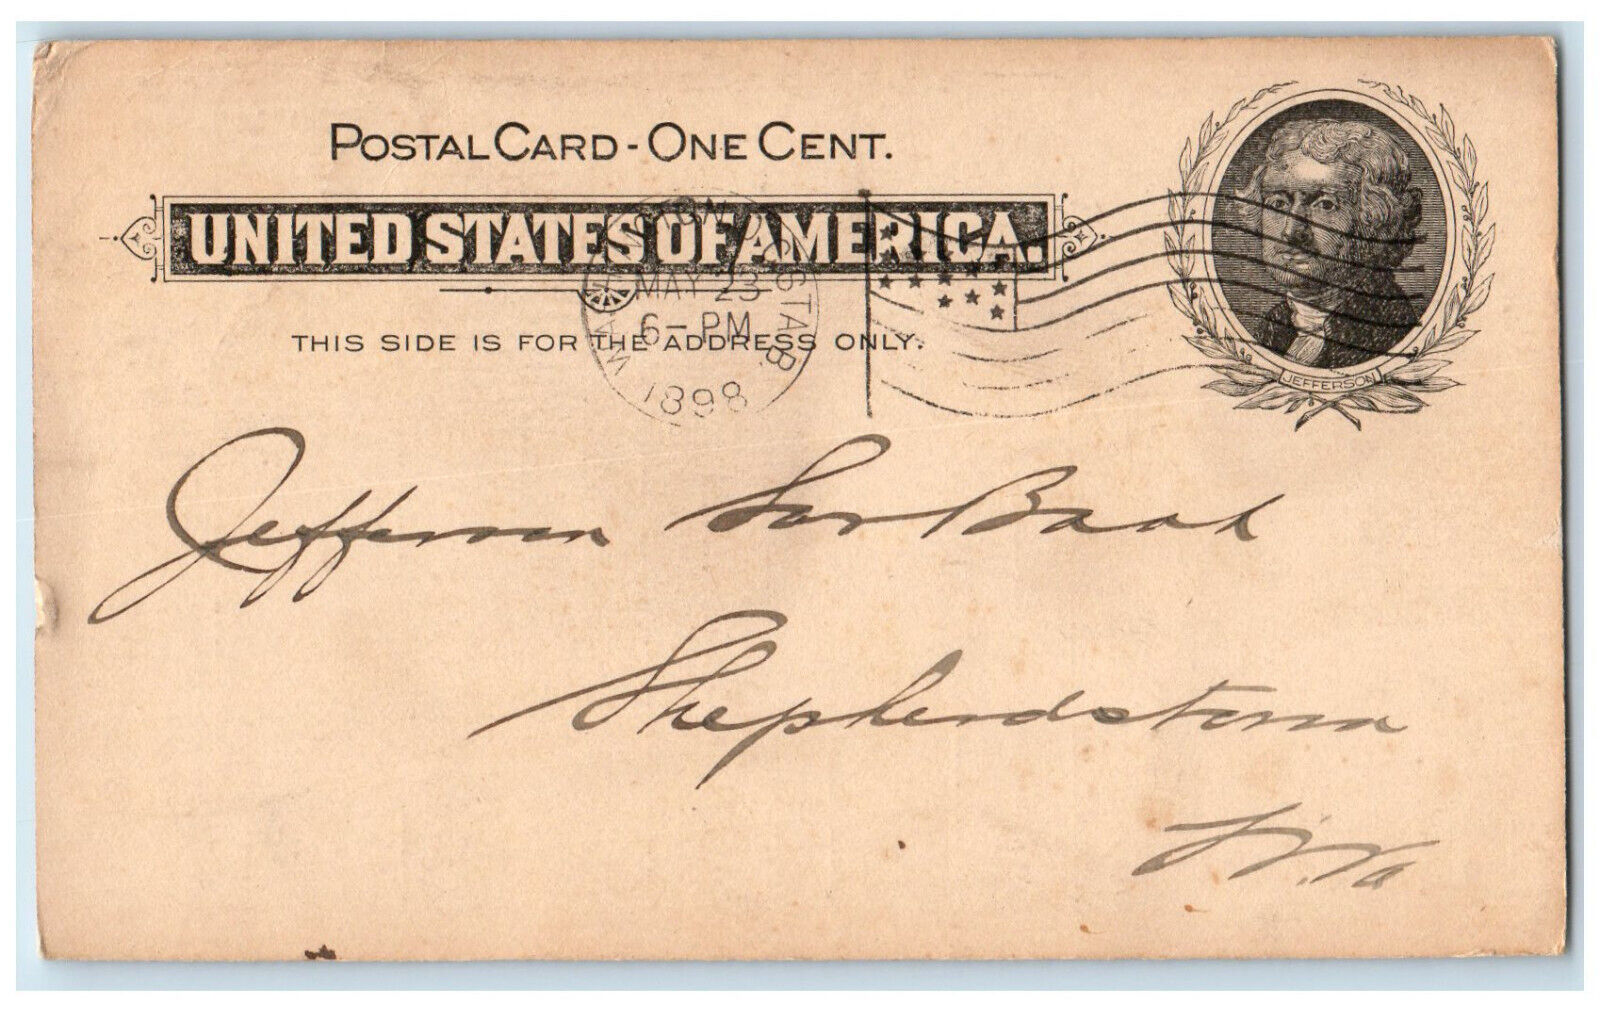 POSTAL CARD - ONE CENT.
UNITED STATES OF AMERICA.
THIS SIDE IS FOR THE ADDRESS ONLY.
WASHINGTON STA. B.
MAY 23
6-PM
1898
JEFFERSON
Jefferson Sav Bank
Shepherdstown
W. Va